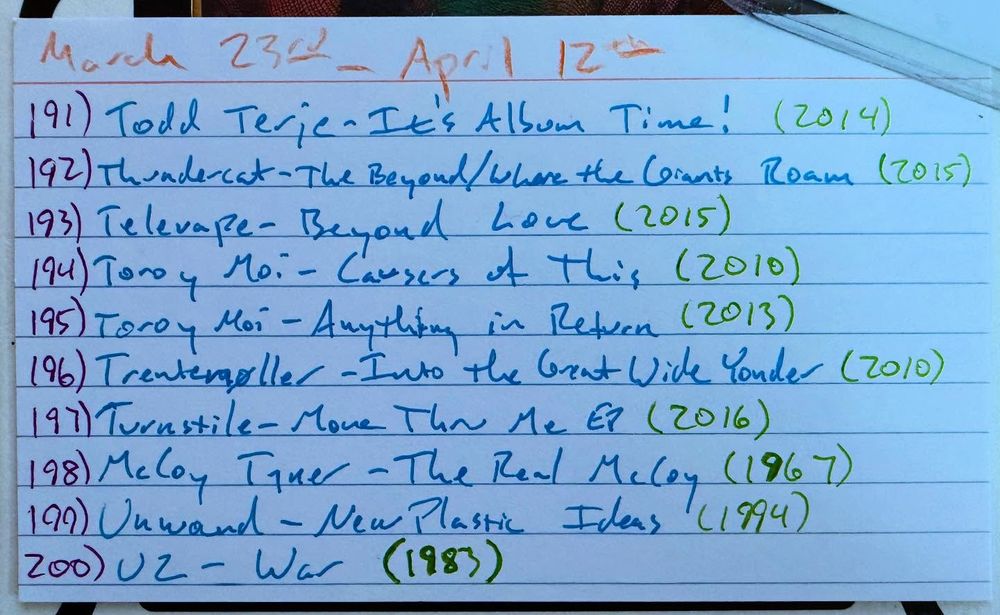 March 23rd - April 12th
191) Todd Terje - It's Album Time! (2014)
192) Thundercat - The Beyond/Where the Giants Roam (2015)
193) Televape - Beyond Love (2015)
194) Toro y Moi - Causers of This (2010)
195) Toro y Moi - Anything in Return (2013)
196) Trentemøller - Into the Great Wide Yonder (2010)
197) Turnstile - Move Thru Me EP (2016)
198) McCoy Tyner - The Real McCoy (1967)
199) Unwound - New Plastic Ideas (1994)
200) U2 - War (1983)